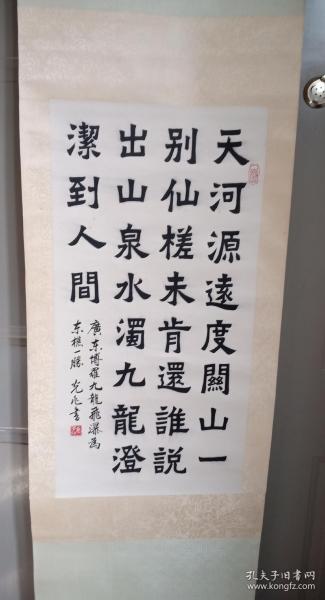 天河源遠度關山一
别仙槎未肯還誰説
出山泉水濁九龍澄
潔到人間
廣东博羅九龍飛瀑爲
东樵一勝 光兆書
孔夫子旧書网